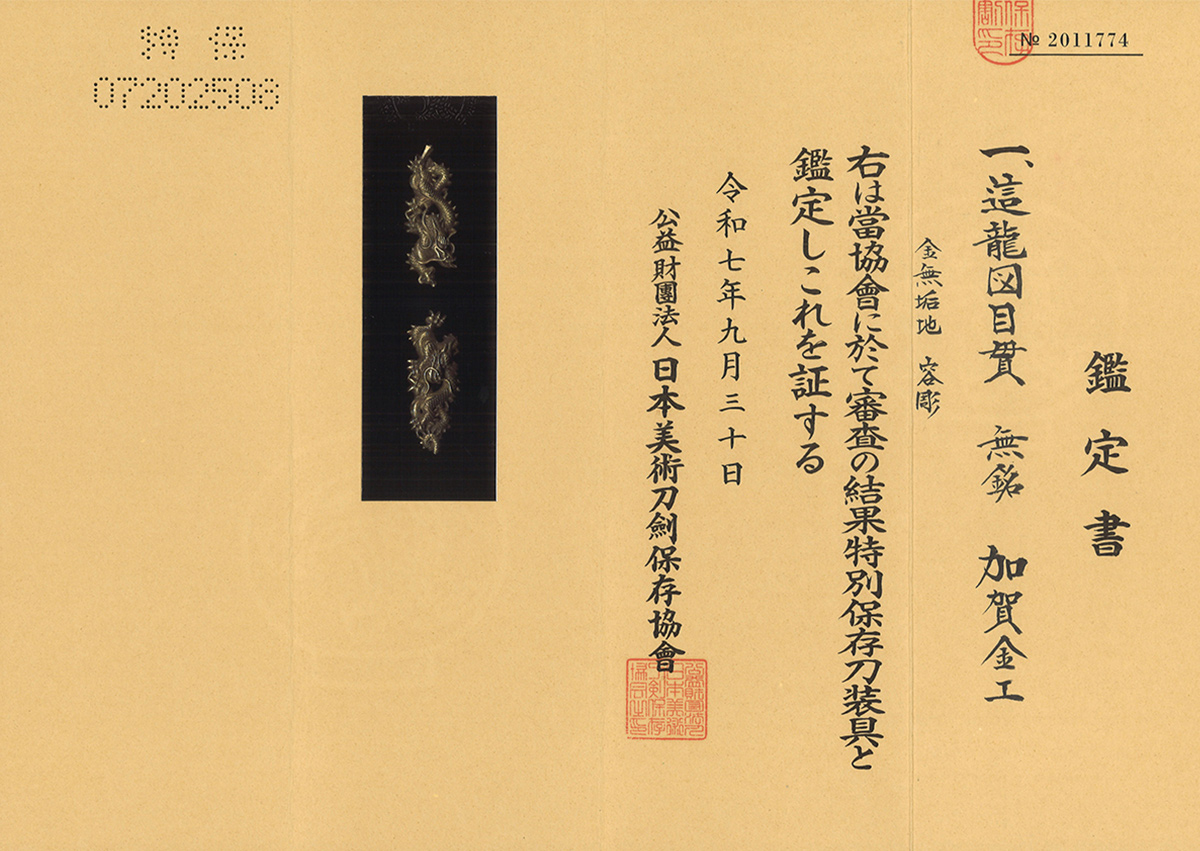 № 2011774
鑑定書
一、這龍図目貫 無銘 加賀金工
金無垢地 容彫
右は當協會に於て審査の結果特別保存刀装具と
鑑定しこれを証する
令和七年九月三十日
公益財團法人 日本美術刀劍保存協會
特保
07202508